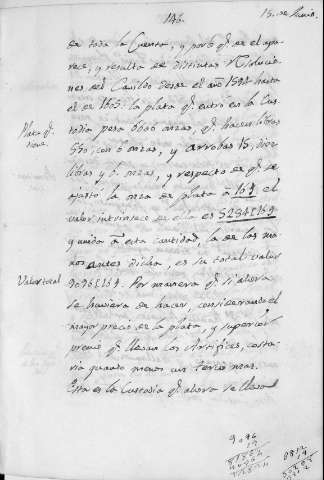 146.
15. de Junio.
de toda la Cuenta, y porq̃ q̃ es el apa-
rece, y resulta de distintas resolucio-
nes del Cavildo desde el año 1594 hasta
el de 1603: la plata q̃ entró en la Cus-
todia pesa onzas, q̃ hacen libras
550, con 6 onzas, y arrobas 15, diez
libras y 6. onzas, y respecto de q̃ se
ajustó la onza de plata à 16 el
valor intrinseco de ella es
y unida à esta cantidad, la de las ma-
nos antes dicha, es su total valor
Por manera q̃ si ahora
se huviera de hacer, considerando el
mayor precio de la plata, y superior
premio q̃ llevan los Artifices, costa-
ria quando menos un tercio mas.
Esta es la Custodia q̃ ahora se llevó
Plata q̃
tiene.
Valor total
9096